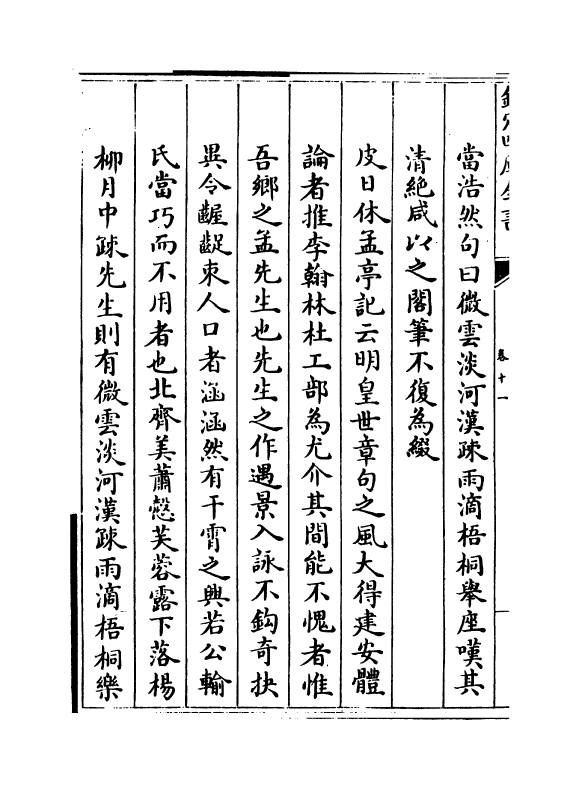 欽定四庫全書
卷十一
當浩然句曰微雲淡河漢疎雨滴梧桐舉座嘆其
清絶咸以之閣筆不復為綴
皮日休孟亭記云明皇世章句之風大得建安體
論者推李翰林杜工部為尤介其間能不愧者惟
吾鄉之孟先生也先生之作遇景入詠不鈎奇抉
異令齷齪束人口者涵涵然有干霄之興若公輸
氏當巧而不用者也北齊美蕭慤芙蓉露下落楊
栁月中疎先生則有微雲淡河漢疎雨滴梧桐樂